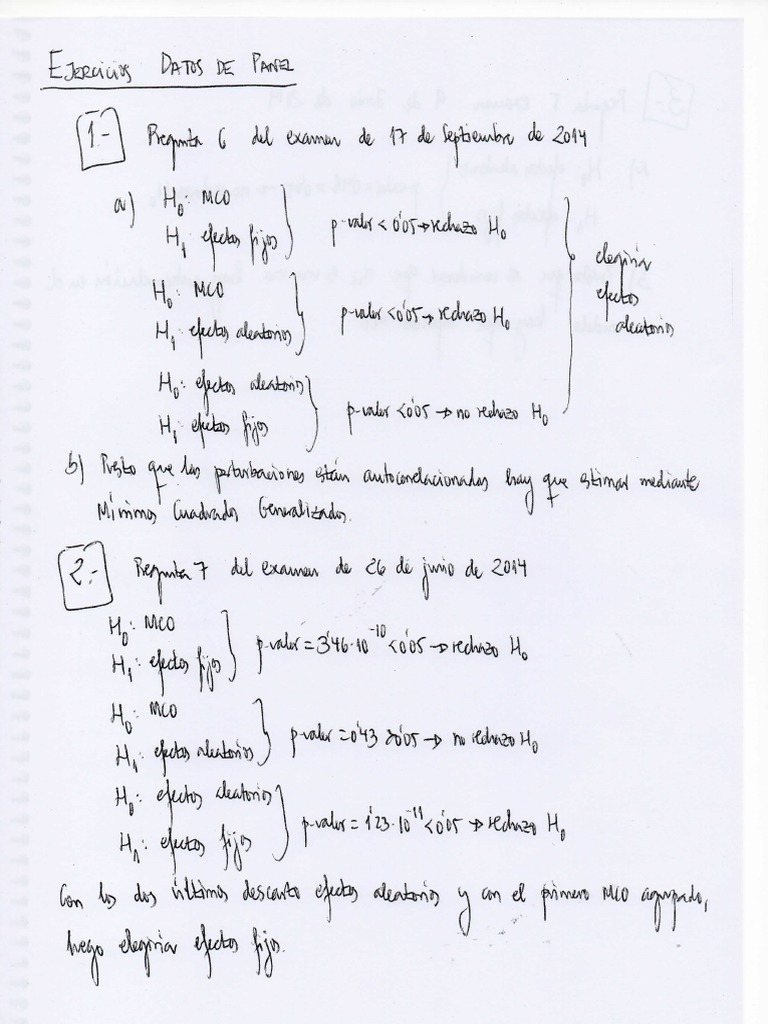 EJERCICIOS DATOS DE PANEL
1.- Pregunta 6 del examen de 17 de Septiembre de 2014
a) H0: MCO
H1: efectos fijos } p-valor < 0'05 → rechazo H0
H0: MCO
H1: efectos aleatorios } p-valor < 0'05 → rechazo H0
H0: efectos aleatorios
H1: efectos fijos } p-valor < 0'05 → no rechazo H0
elegiría
efectos
aleatorios
b) Puesto que las perturbaciones están autocorrelacionadas hay que estimar mediante
Mínimos Cuadrados Generalizados.
2.- Pregunta 7 del examen de 26 de junio de 2014
H0: MCO
H1: efectos fijos } p-valor = 3'46·10^-10 < 0'05 → rechazo H0
H0: MCO
H1: efectos aleatorios } p-valor = 0'43 > 0'05 → no rechazo H0
H0: efectos aleatorios
H1: efectos fijos } p-valor = 1'23·10^-11 < 0'05 → rechazo H0
Con los dos últimos descarto efectos aleatorios y con el primero MCO agrupado,
luego elegiría efectos fijos.